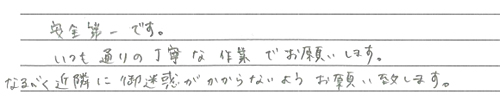 安全第一です。
いつも通りの丁寧な作業でお願いします。
なるべく近隣に御迷惑がかからないようお願い致します。